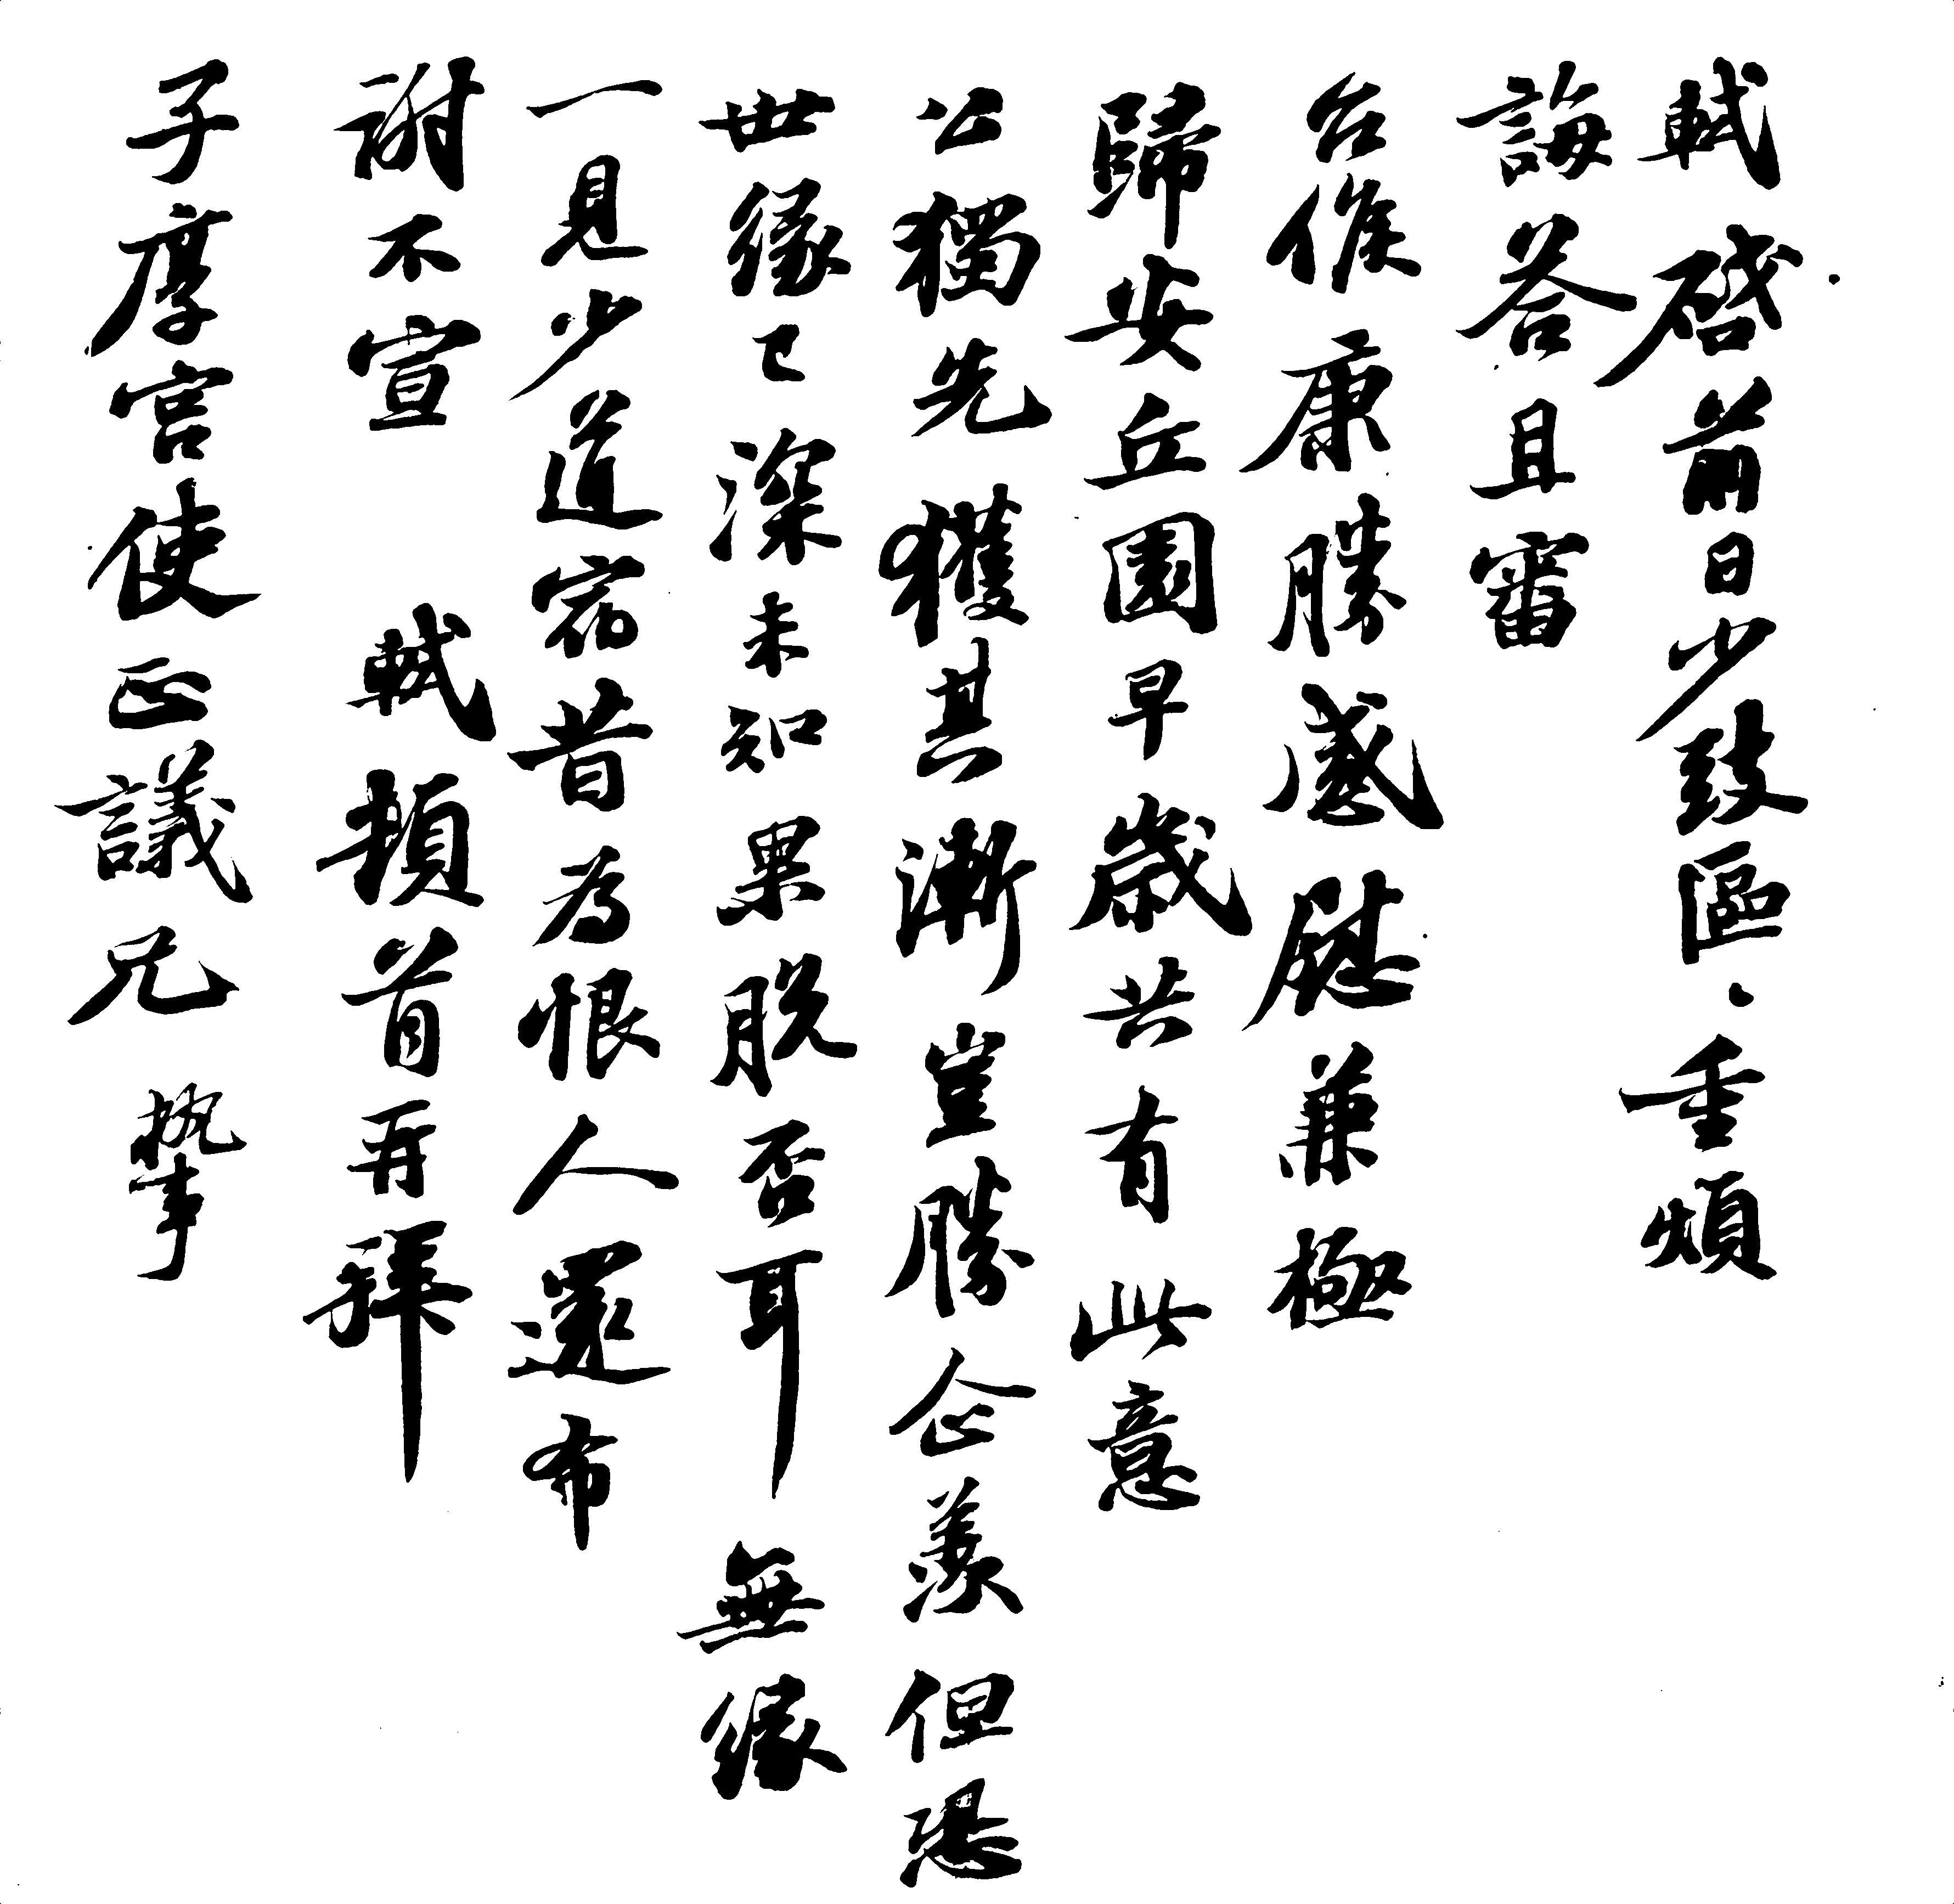 軾啓前日少致區區重煩
誨答且審
台候康勝感慰兼極
歸安丘園早歲共有此意
公獨先獲其漸豈勝企羨但恐
世緣已深未知果脫否耳無緣
一見少道宿昔為恨人還布
謝不宣 軾頓首再拜
子厚宮使正議兄執事